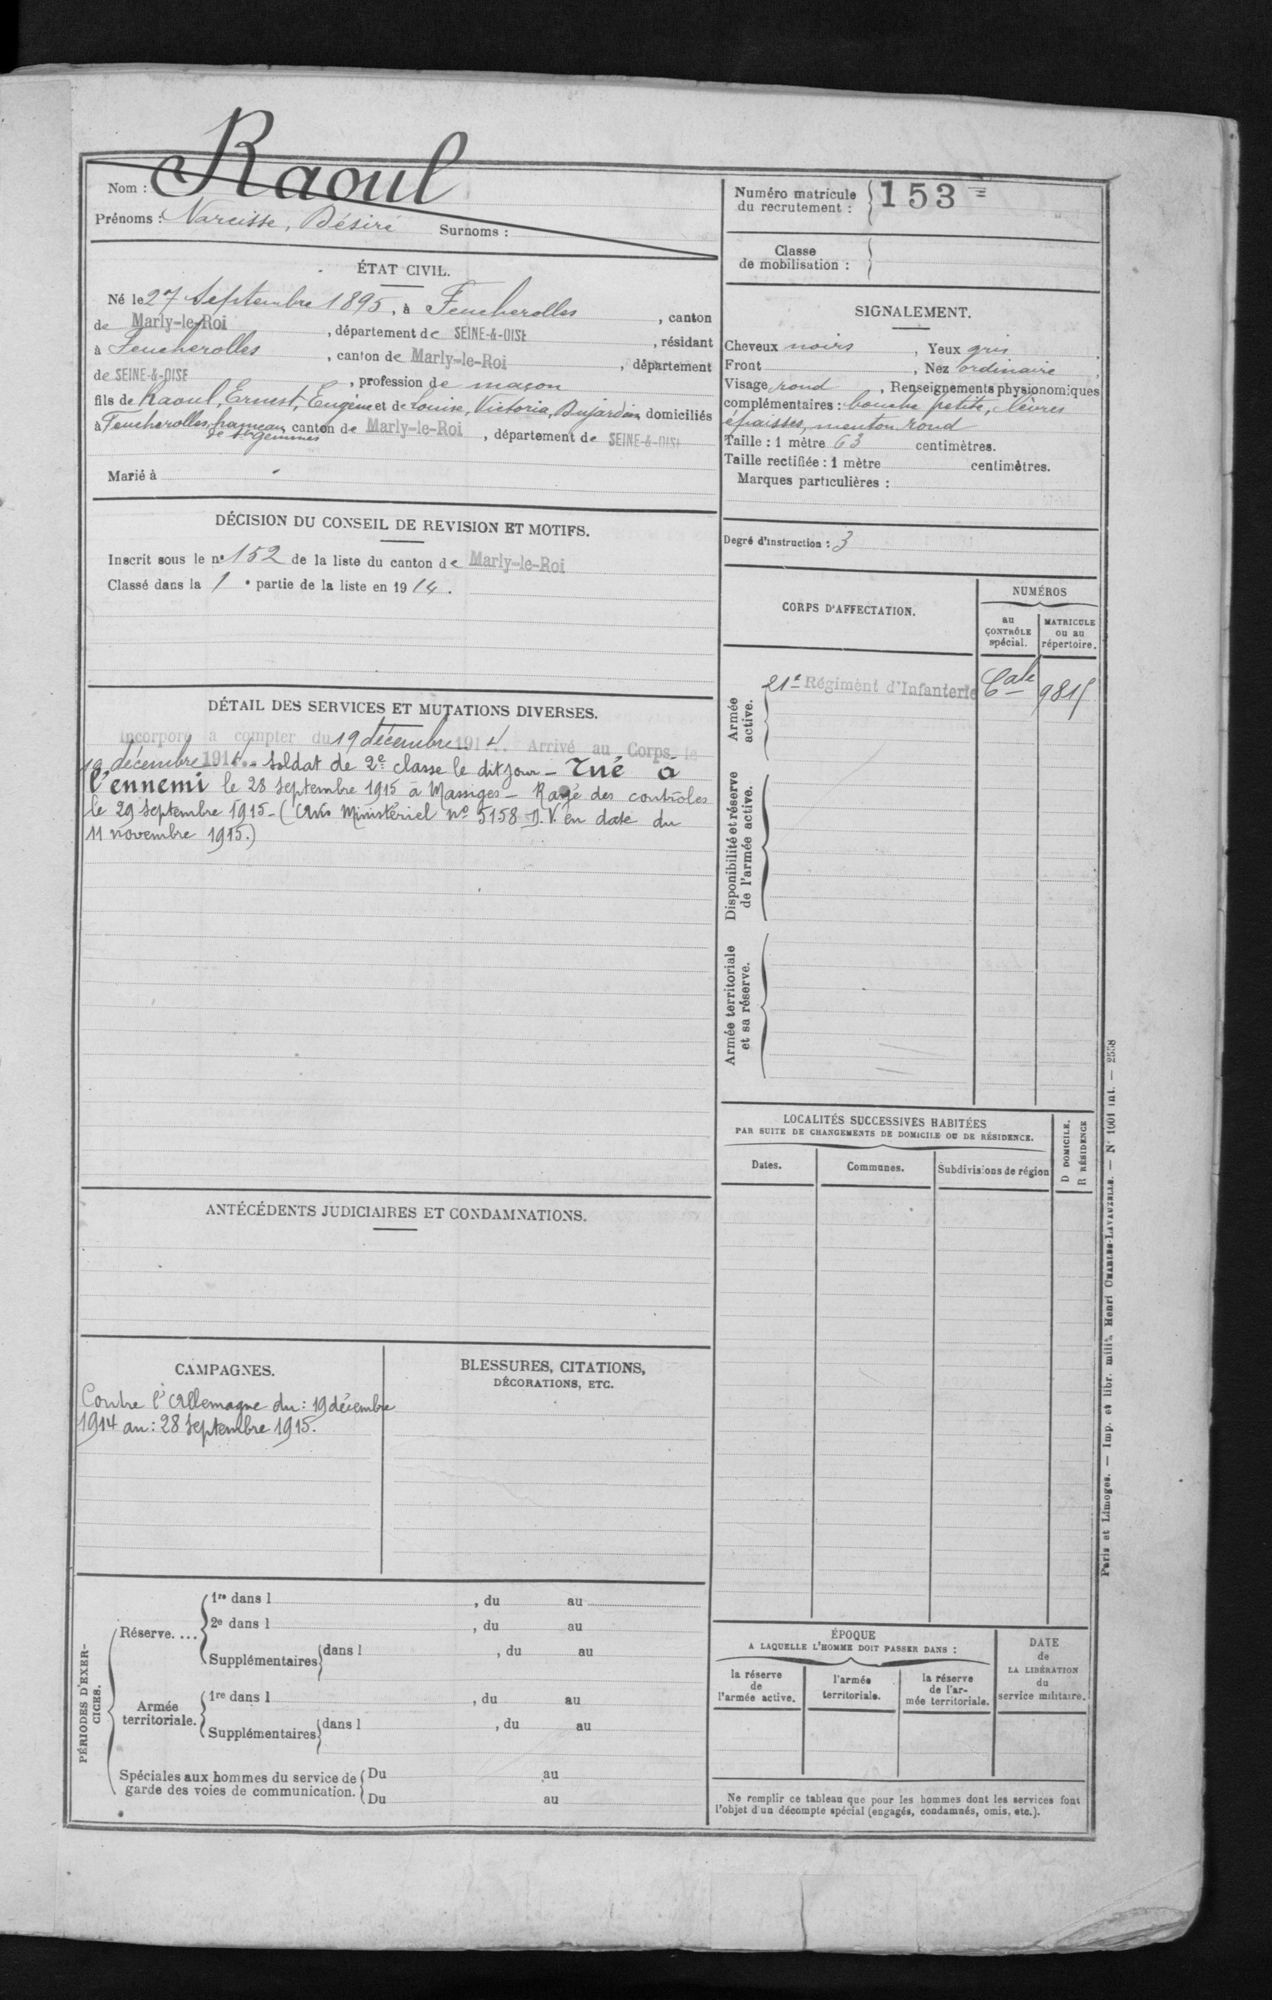 Nom : Raoul
Prénoms : Narcisse, Désiré Surnoms :
ÉTAT CIVIL.
Né le 27 Septembre 1895, à Feucherolles, canton
de Marly-le-Roi, département de SEINE-&-OISE, résidant
à Feucherolles, canton de Marly-le-Roi, département
de SEINE-&-OISE, profession de maçon
fils de Raoul, Ernest, Eugène et de Louise, Victoria, Dujardin domiciliés
à Feucherolles, hameau canton de Marly-le-Roi, département de SEINE-&-OISE
Marié à
DÉCISION DU CONSEIL DE REVISION ET MOTIFS.
Inscrit sous le nº 152 de la liste du canton de Marly-le-Roi
Classé dans la 1 e partie de la liste en 1914.
DÉTAIL DES SERVICES ET MUTATIONS DIVERSES.
Incorporé à compter du 19 décembre 1914. Arrivé au Corps le
19 décembre 1914. Soldat de 2e classe le dit jour – Tué à
l'ennemi le 28 septembre 1915 à Massiges – Rayé des contrôles
le 29 septembre 1915 – (Avis Ministériel Nº 5158 D.V. en date du
11 novembre 1915.)
ANTÉCÉDENTS JUDICIAIRES ET CONDAMNATIONS.
CAMPAGNES.
Contre l'Allemagne du : 19 décembre
1914 au : 28 septembre 1915.
BLESSURES, CITATIONS,
DÉCORATIONS, ETC.
PÉRIODES D'EXER-
CICES.
Réserve....
1re dans l , du au
2e dans l , du au
Supplémentaires dans l , du au
Armée
territoriale.
1re dans l , du au
Supplémentaires dans l , du au
Spéciales aux hommes du service de
garde des voies de communication.
Du au
Du au
Numéro matricule
du recrutement : 153
Classe
de mobilisation :
SIGNALEMENT.
Cheveux noirs, Yeux gris,
Front , Nez ordinaire,
Visage rond, Renseignements physionomiques
complémentaires : bouche petite, lèvres
épaisses, menton rond
Taille : 1 mètre 63 centimètres.
Taille rectifiée : 1 mètre centimètres.
Marques particulières :
Degré d'instruction : 3
CORPS D'AFFECTATION.
NUMÉROS
au
CONTRÔLE
spécial.
MATRICULE
ou au
répertoire.
Armée
active.
21e Régiment d'Infanterie
Disponibilité et réserve
de l'armée active.
Armée territoriale
et sa réserve.
LOCALITÉS SUCCESSIVES HABITÉES
PAR SUITE DE CHANGEMENTS DE DOMICILE OU DE RÉSIDENCE.
Dates.
Communes.
Subdivisions de région
D DOMICILE.
R RÉSIDENCE
ÉPOQUE
A LAQUELLE L'HOMME DOIT PASSER DANS :
la réserve
de
l'armée active.
l'armée
territoriale.
la réserve
de l'ar-
mée territoriale.
DATE
de
LA LIBÉRATION
du
service militaire.
Ne remplir ce tableau que pour les hommes dont les services font
l'objet d'un décompte spécial (engagés, condamnés, omis, etc.).
Paris et Limoges. — Imp. et libr. milit. Henri CHARLES-LAVAUZELLE. — Nº 1001 int. — 2558